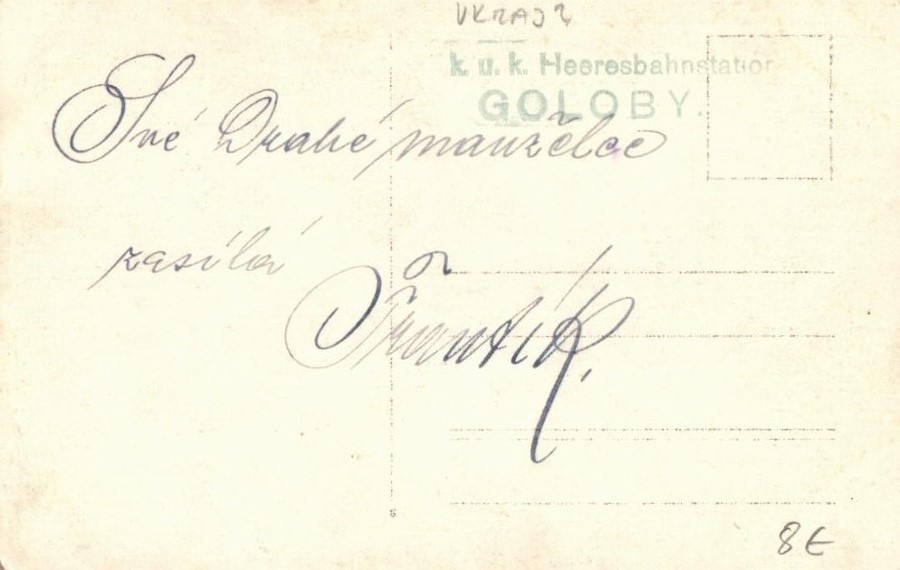 k. u. k. Heeresbahnstation
GOLOBY.
Své Drahé manželce
zasílá
Frantík.
8€